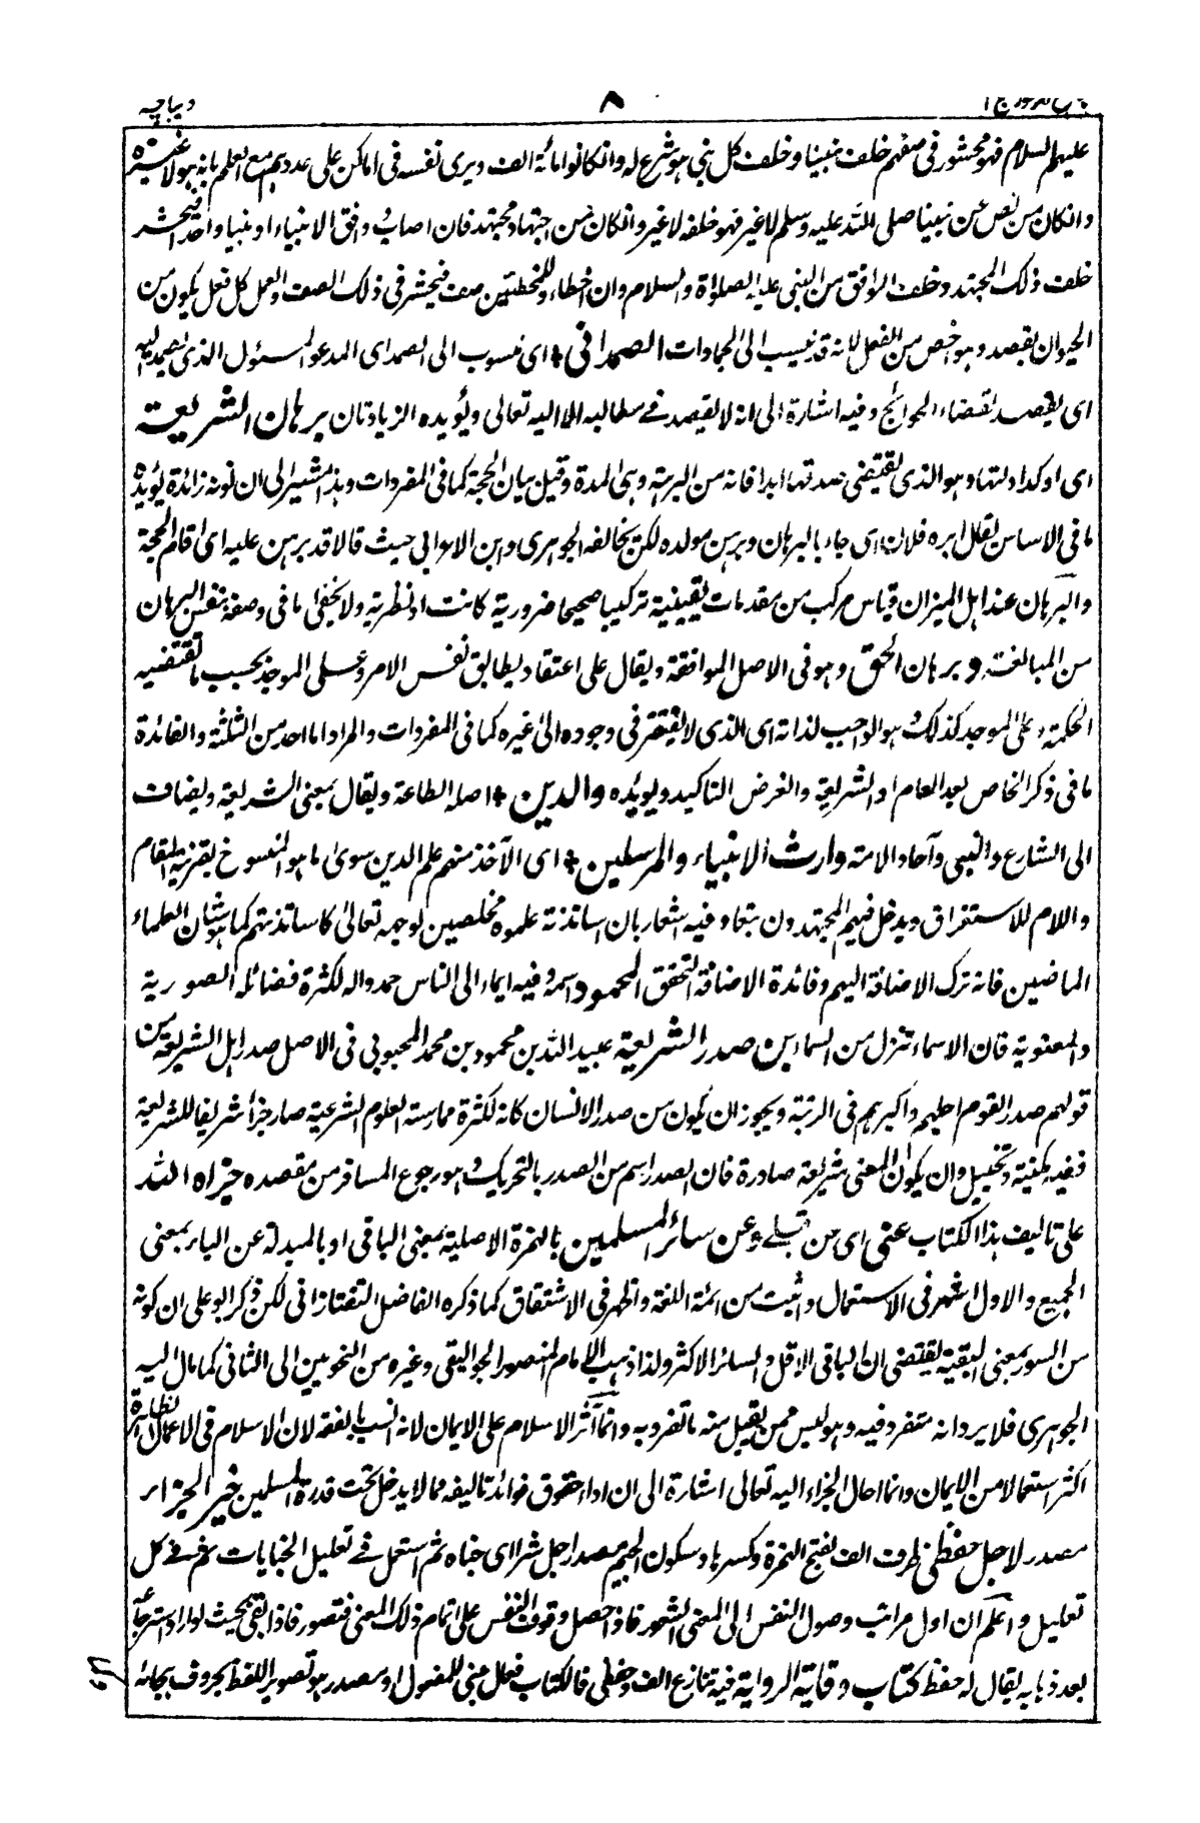 جامع الرموز ج ۱ ۸ دیباچه
علیهم السلام فهو محشور فی صفهم خلف نبینا و خلف کل نبی هو شرع له وان کانوا مائة الف ویری نفسه فی اماکن علی عددهم مع العلم بانه هو لا غیره
وان کان من نص عن نبینا صلی الله علیه وسلم لا غیر فهو خلفه لا غیر وان کان من اجتهاد مجتهد فان اصاب وافق الانبیاء او نبیا واحدا فیحشر
خلف ذلک المجتهد وخلف الوافق من النبی علیه الصلوة والسلام وان اخطاء وللمخطئین صف فیحشر فی ذلک الصف والعمل کل فعل یکون من
الحیوان بقصد وهو اخص من الفعل لانه قد ینسب الی الجمادات الصمدانی ای منسوب الی الصمد ای المدعو المسئول الذی یصمد الیه
ای یقصد لقضاء الحوائج وفیه اشارة الی انه لا یقصد فی مطالبه الا الیه تعالی ویؤیده الزیادتان برهان الشریعة
ای اوکد ادلتها وهو الذی یقتضی صدقها ابدا فانه من البرهة وهی المدة وقیل بیان الحجة کما فی المفردات وهذا مشیر الی ان نونه زائدة یؤیده
ما فی الاساس یقال ابره فلان ای جاء بالبرهان وبرهن مولده لکن یخالفه الجوهری وابن الاعرابی حیث قالا قد برهن علیه ای اقام الحجة
والبرهان عند اهل المیزان قیاس مرکب من مقدمات یقینیة ترکیبا صحیحا ضروریة کانت او نظریة ولا یخفی ما فی وصفه بنفس البرهان
من المبالغة وبرهان الحق وهو فی الاصل الموافقة ویقال علی اعتقاد یطابق نفس الامر وعلی الموجد بحسب ما تقتضیه
الحکمة وعلی الموجد کذلک هو الواجب لذاته ای الذی لا یفتقر فی وجوده الی غیره کما فی المفردات والمراد اما احد من الثلثة والفائدة
ما فی ذکر الخاص بعد العام او الشریعة والغرض التاکید ویؤیده والدین اصله الطاعة ویقال بمعنی الشریعة ویضاف
الی الشارع والنبی وآحاد الامة وارث الانبیاء والمرسلین ای الآخذ منهم علم الدین سوی ما هو المنسوخ بقرینة المقام
واللام للاستغراق ویدخل فیهم المجتهدون تبعا وفیه اشعار بان اساتذته علموه مخلصین لوجهه تعالی کاساتذتهم کما هو شان العلماء
الماضین فانه ترک الاضافة الیهم وفائدة الاضافة التحقق المحمود اسمه وفیه ایماء الی الناس حمدوا له لکثرة فضائله الصوریة
والمعنویة فان الاسماء تنزل من السماء بن صدر الشریعة عبید الله بن محمود بن محمد المحبوبی فی الاصل صدر اهل الشریعة من
قولهم صدر القوم اجلهم واکبرهم فی الرتبة ویجوز ان یکون من صدر الانسان کانه لکثرة ممارسته العلوم الشرعیة صار جزأ شریفا للشریعة
ففیه مکنیة وتخییل وان یکون المعنی شریعة صادرة فان الصدر اسم من الصدر بالتحریک وهو رجوع المسافر من مقصده جزاه الله
علی تالیف هذا الکتاب عنی ای من قبلی وعن سائر المسلمین بالهمزة الاصلیة بمعنی الباقی او بالمبدلة عن الیاء بمعنی
الجمیع والاول اشهر فی الاستعمال واثبت من ائمة اللغة واظهر فی الاشتقاق کما ذکره الفاضل التفتازانی لکن ذکر ابو علی ان کونه
من السور بمعنی البقیة یقتضی ان الباقی الاقل والسائر الاکثر ولذا ذهب الامام المنصور الجوالیقی وغیره من النحویین الی الثانی کما مال الیه
الجوهری فلا یرد انه متفرد فیه وهو لیس ممن یقبل منه ما تفرد به وانما آثر الاسلام علی الایمان لانه انسب بالفقه لان الاسلام فی الاعمال الظاهرة
اکثر استعمالا من الایمان وانما احال الجزاء الیه تعالی اشارة الی ان اداء حقوق فوائد تالیفه مما لا یدخل تحت قدرة المسلمین خیر الجزاء
مصدر لاجل حفظی ظرف الف بفتح الهمزة وکسرها وسکون الجیم مصدر اجل شرا ای جناه ثم استعمل فی تعلیل الجنایات ثم فی کل
تعلیل واعلم ان اول مراتب وصول النفس الی المعنی الشعور فاذا حصل وقوف النفس علی تمام ذلک المعنی فتصور فاذا بقی بحیث لو اراد استرجاعه
بعد ذهابه یقال له حفظ کتاب وقایة الروایة فیه تنازع الف وحفظی فالکتاب فعال مبنی للمفعول او مصدر هو تصویر اللفظ بحروف هجائه